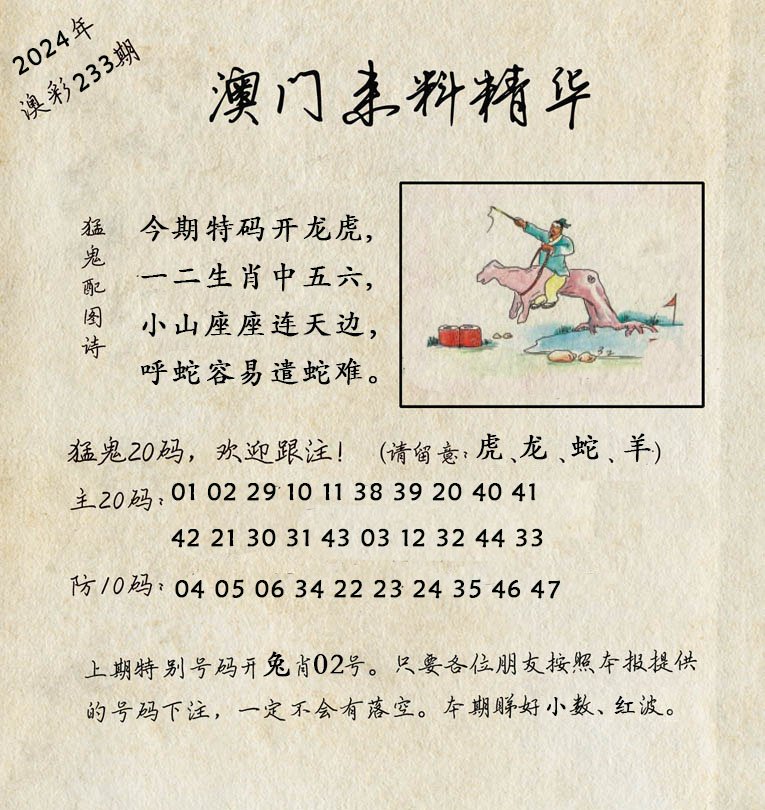 2024年
澳彩233期
澳门来料精华
猛鬼配图诗
今期特码开龙虎，
一二生肖中五六，
小山座座连天边，
呼蛇容易遣蛇难。
猛鬼20码，欢迎跟注！（请留意：虎、龙、蛇、羊）
主20码：01 02 29 10 11 38 39 20 40 41
42 21 30 31 43 03 12 32 44 33
防10码：04 05 06 34 22 23 24 35 46 47
上期特别号码开兔肖02号。只要各位朋友按照本报提供
的号码下注，一定不会有落空。本期睇好小数、红波。